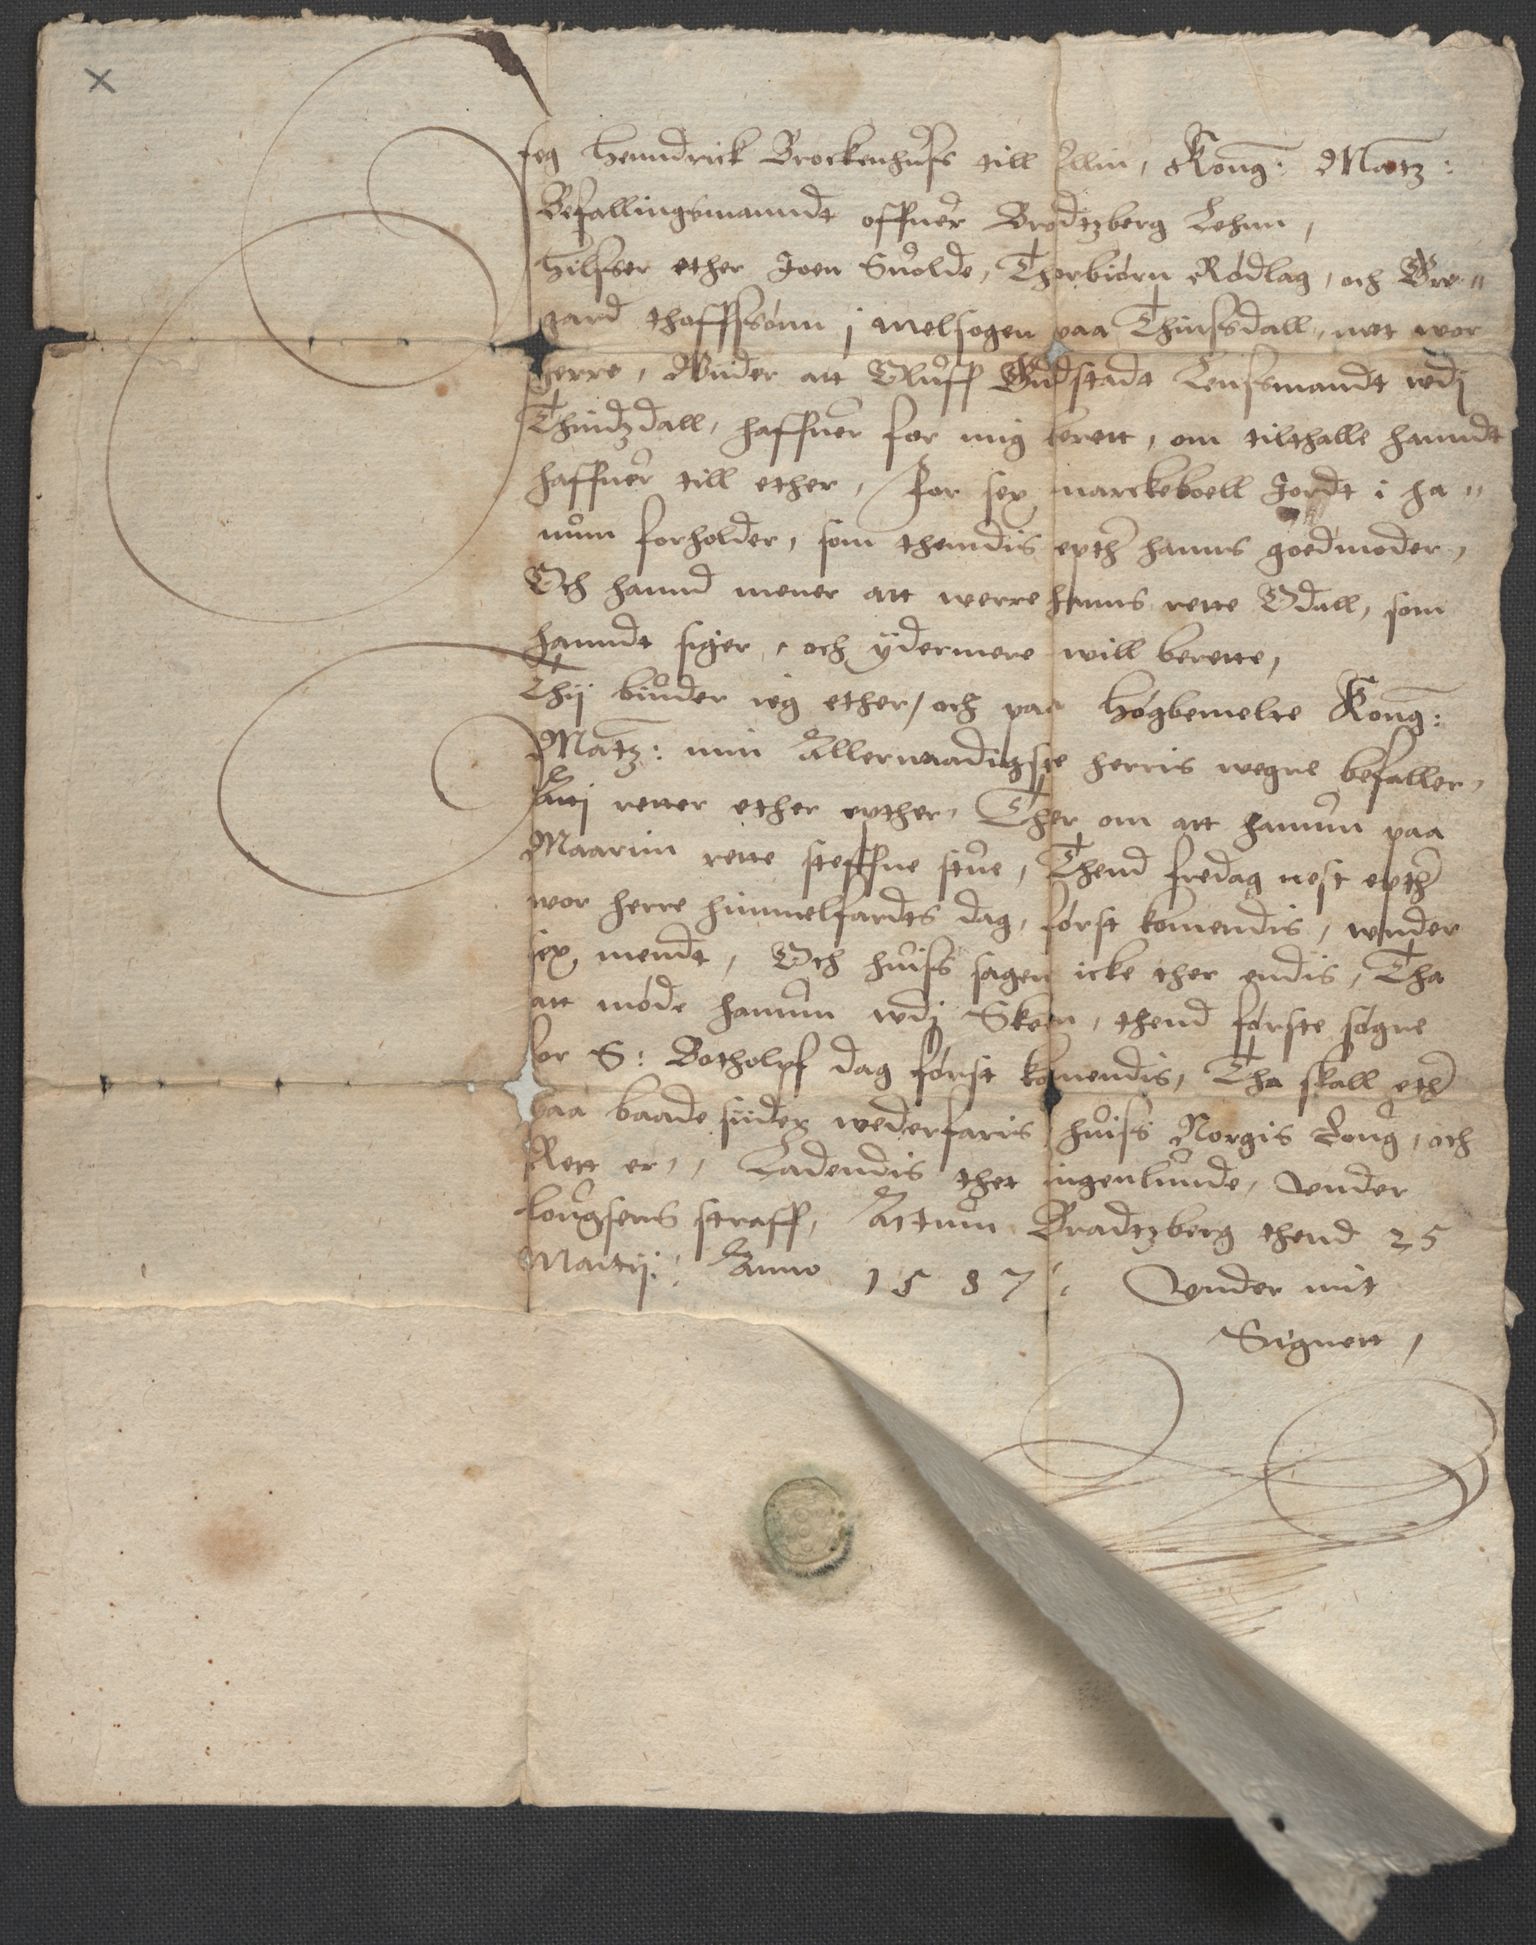 Jeg Henndrick Brockenhuss till Ellin, Kong: Matz:
Befallingsmanndt offuer Brodtzberg Lehnn,
Hilsser ether Joen Suolde, Thorbiørn Rødlag, och Gre"
gard thoffssønn j Melsogen paa Thinssdall, met wor
herre, Wider att Oluff Gudstadt Lenssmandt wdj
Thindzdall, haffuer for mig berett, om tilthalle hanndt
haffuer till ether, For sex marckeboell Jordt i ha"
num forholder, som thendis epther hanns goedmoder,
Och hannd mener att werre hanns rette Odall, som
hanndt siger, och ÿdermere will berette,
Thij biuder ieg ether, och paa Høgbemelte Kong:
Matz: min Allernaadigste herris wegne befaller,
Atj retter ether epther, Ther om att hanum paa
Maarim rette steffne stue, Thend fredag nest epther
wor herre himmelfardts dag, først komendis, wnder
sex mendt, Och huiss sagen icke ther endis, Tha
att møde hanum wdj Skeen, thend første søgne
for S: Botholff dag først komendis, Tha skall ether
paa baade sider wederfaris huiss Norgis Loug, och
Rett er, Ladendis thet ingenlunde, Vnder
lougsens straff, Actum Bradtzberg thend 25
Martij: Anno 1587. Vnder mit
Signett,